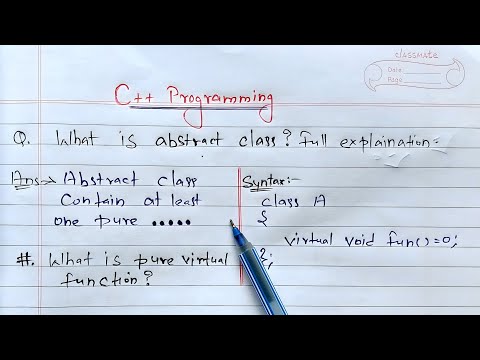 classmate
Date
Page
C++ Programming
Q. What is abstract class? Full explaination:-
Ans→ Abstract class
Contain at least
one pure .....
#. What is pure virtual
function?
Syntax:-
class A
{
virtual void fun()=0;
};